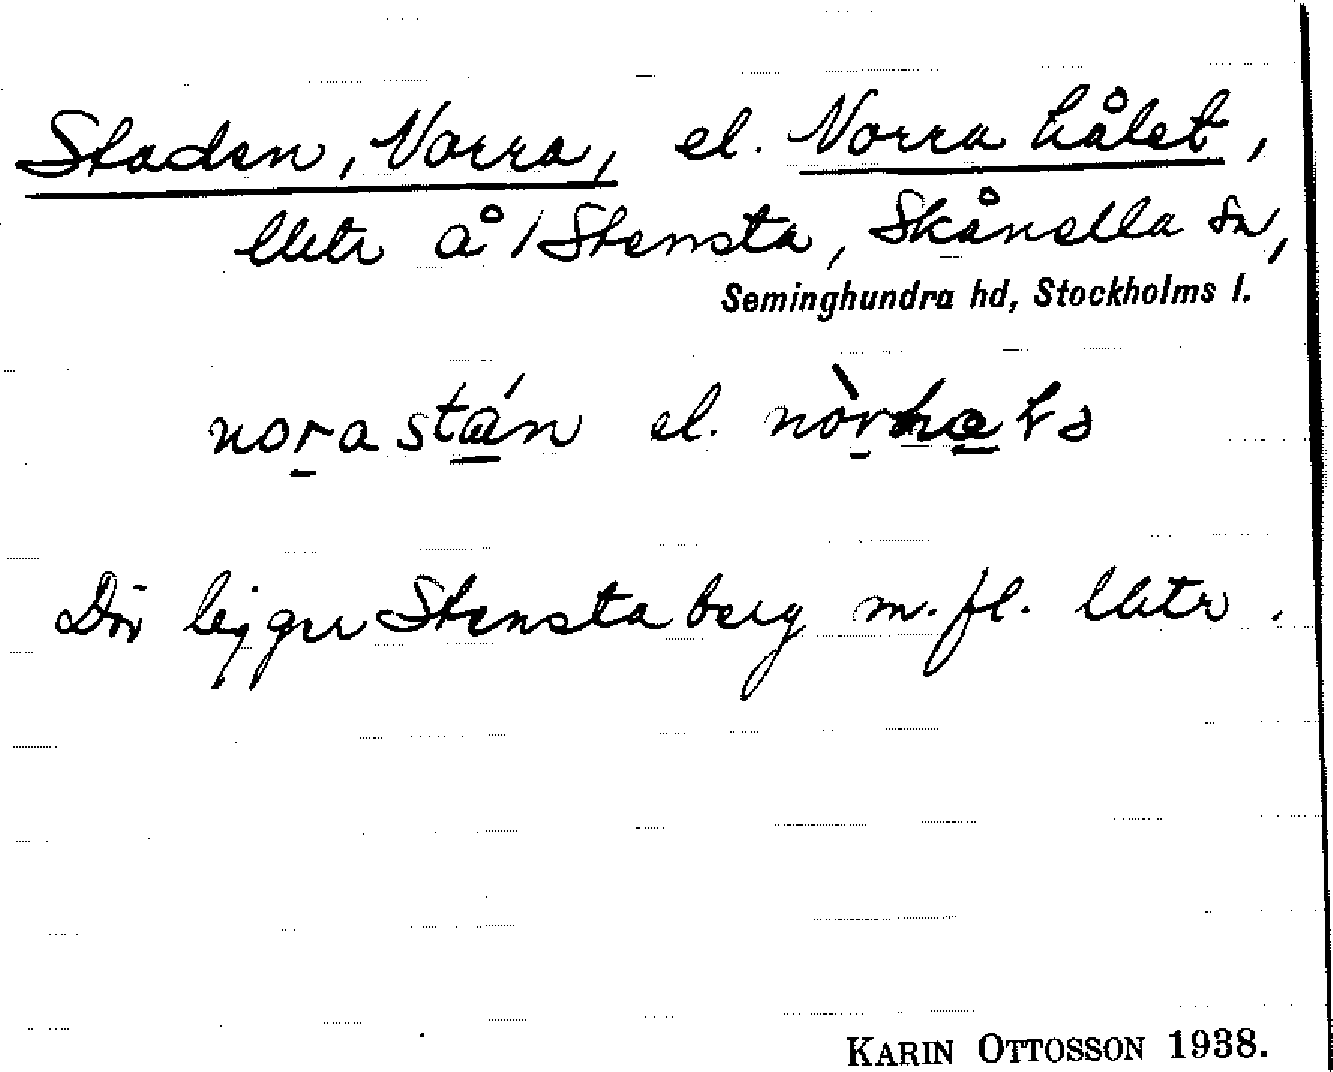 Staden, Norra, el. Norra hålet,
lletr å 1 Stensta, Skånella sn,
Seminghundra hd, Stockholms l.
norastán el. nòrhals
Där ligger Stensta berg m. fl. lletr.
KARIN OTTOSSON 1938.